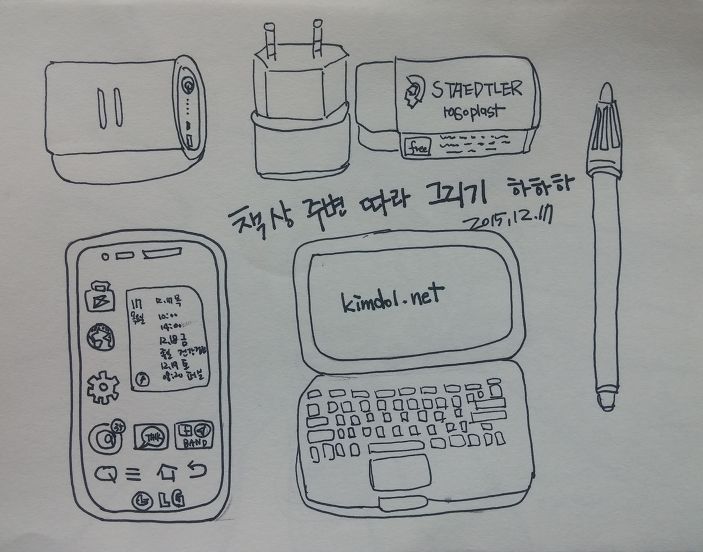 STAEDTLER
rasoplast
free
책상 주변 따라 그리기 하하하
2015.12.17
kimdol.net
17
목요일
12.17 목
10:00
14:00
12.18 금
12.19 토
08:20
TALK
BAND
LG